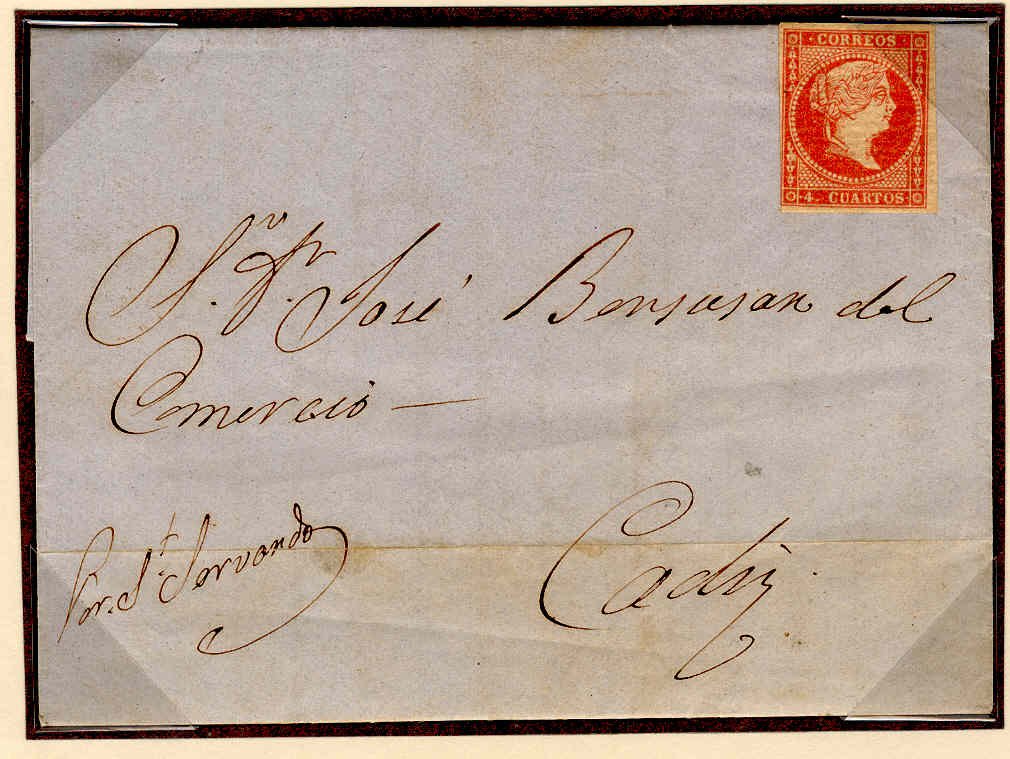 CORREOS
4 CUARTOS
S.r D.n José Bensusan del
Comercio —
Por. S.t Servando
Cadiz.